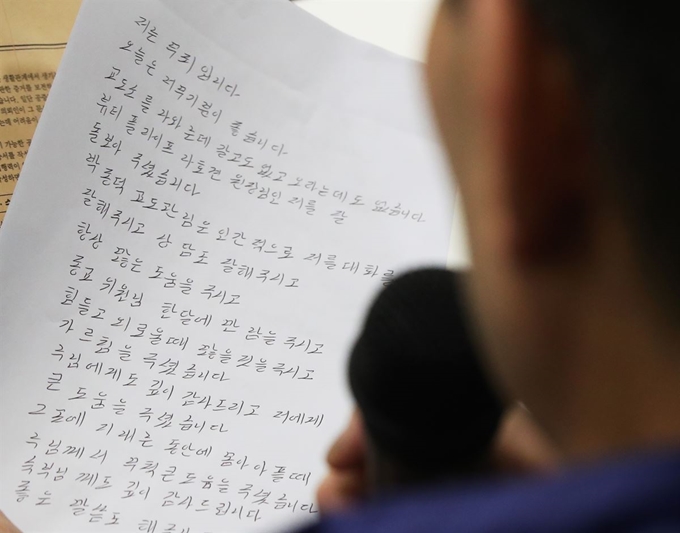 저는 무죄 입니다
오늘은 저무기분이 좋습니다.
교도소를 나와 온데 갈고도 없고 오라는데도 없습니다
뷰티플라이프 나호견 원장님인 저를 잘
돌보아 주셨습니다
박종덕 교도관 님은 인간적으로 저를 대화를
잘해주시고 상담도 잘해주시고
항상 많은 도움을 주시고
종교위원님 한달에 만남을 주시고
힘들고 외로울때 많을것을 주시고
가르침을 주셨습니다
주님에게도 깊이 감사드리고 저에게
큰 도움을 주셨습니다
그 돌에 지내른 동안에 몸아아플때
수님께서 무척큰 도움을 주셨습니다
깊이 감사드립니다
좋은 말씀도 해
생활관계에서